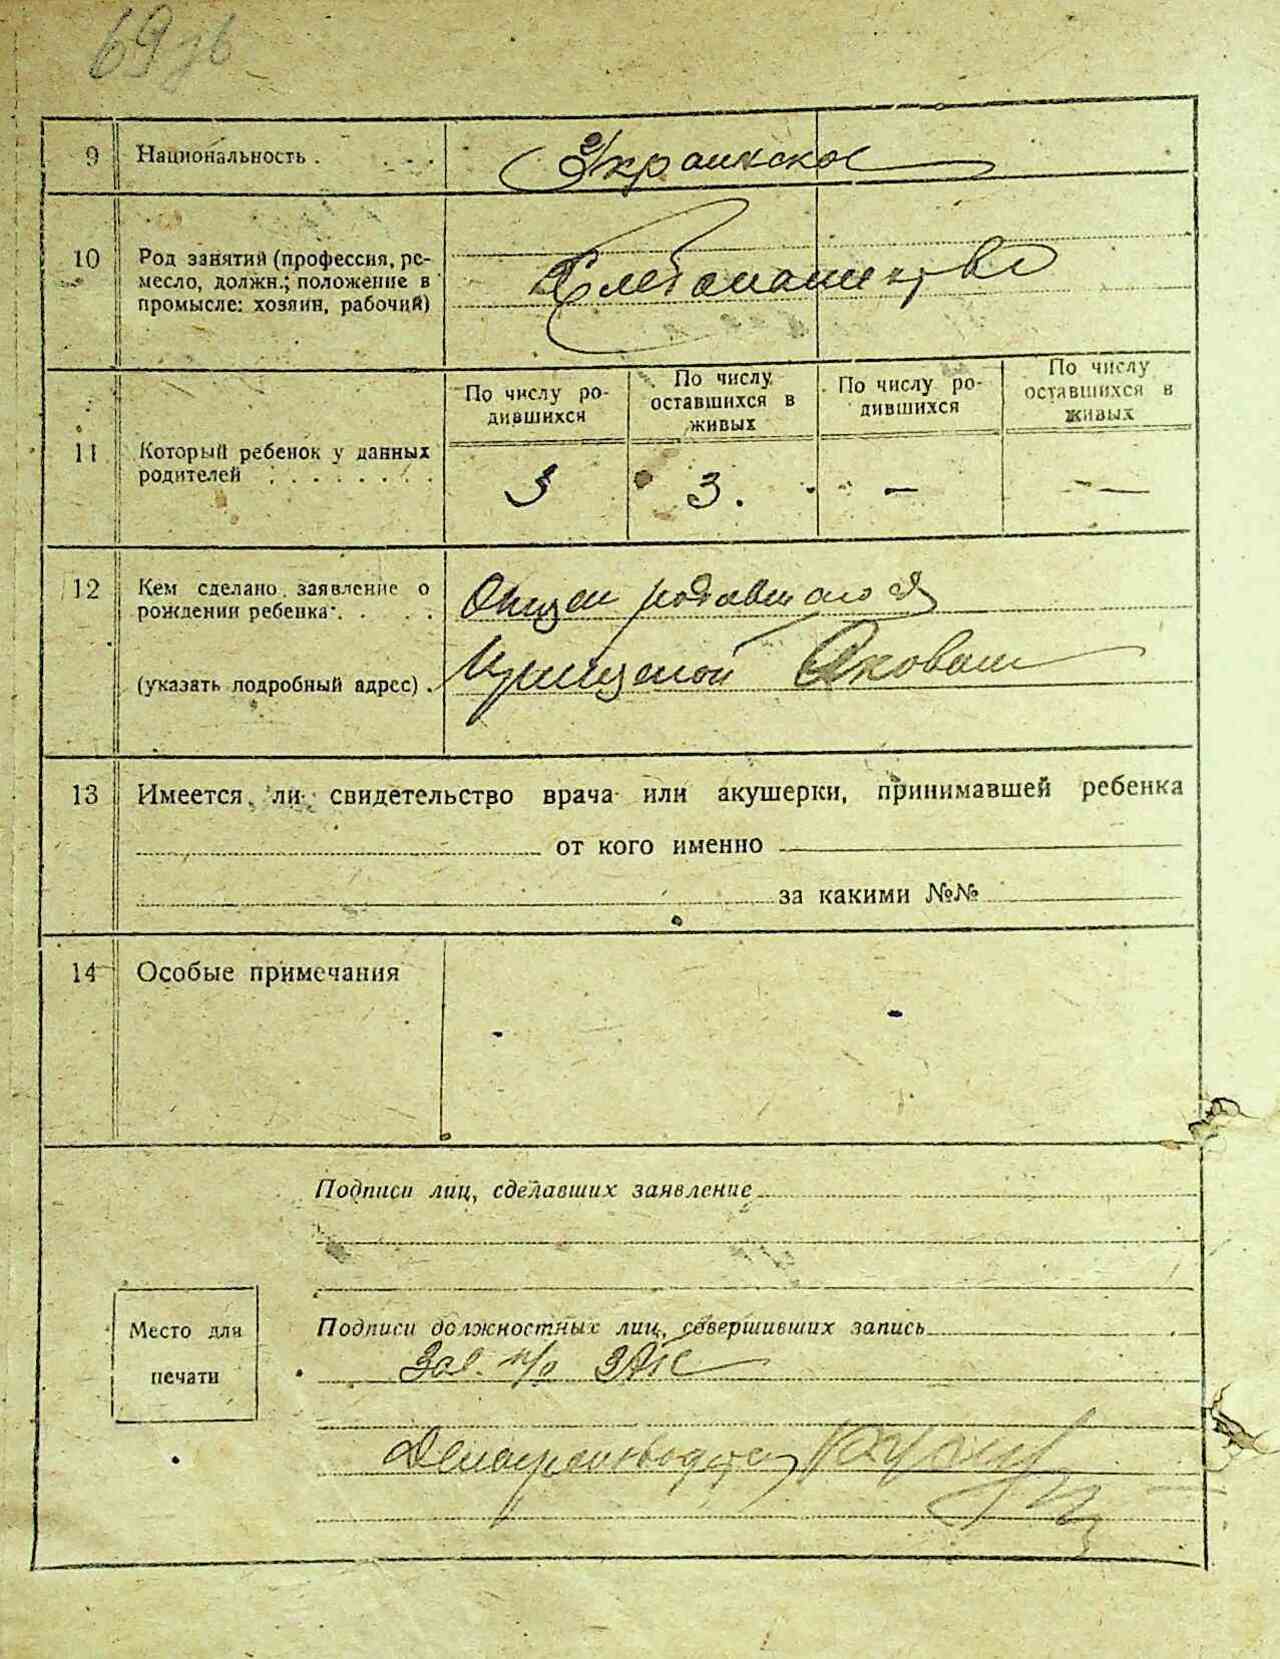 69 зв
9 Национальность . . . . Украинское
10 Род занятий (профессия, ре-
месло, должн.; положение в
промысле: хозяин, рабочий)
Хлебопашество
По числу ро-
дившихся
По числу
оставшихся в
живых
По числу ро-
дившихся
По числу
оставшихся в
живых
11 Который ребенок у данных
родителей . . . . . . . .
3 3. — —
12 Кем сделано заявление о
рождении ребенка . . . .
(указать подробный адрес) .
Отцем
Яковом
13 Имеется ли свидетельство врача или акушерки, принимавшей ребенка
от кого именно
за какими №№
14 Особые примечания
- -
Подписи лиц, сделавших заявление
Место для
печати
Подписи должностных лиц, совершивших запись
Зав. п/о ЗАГС
Делопроизводитель